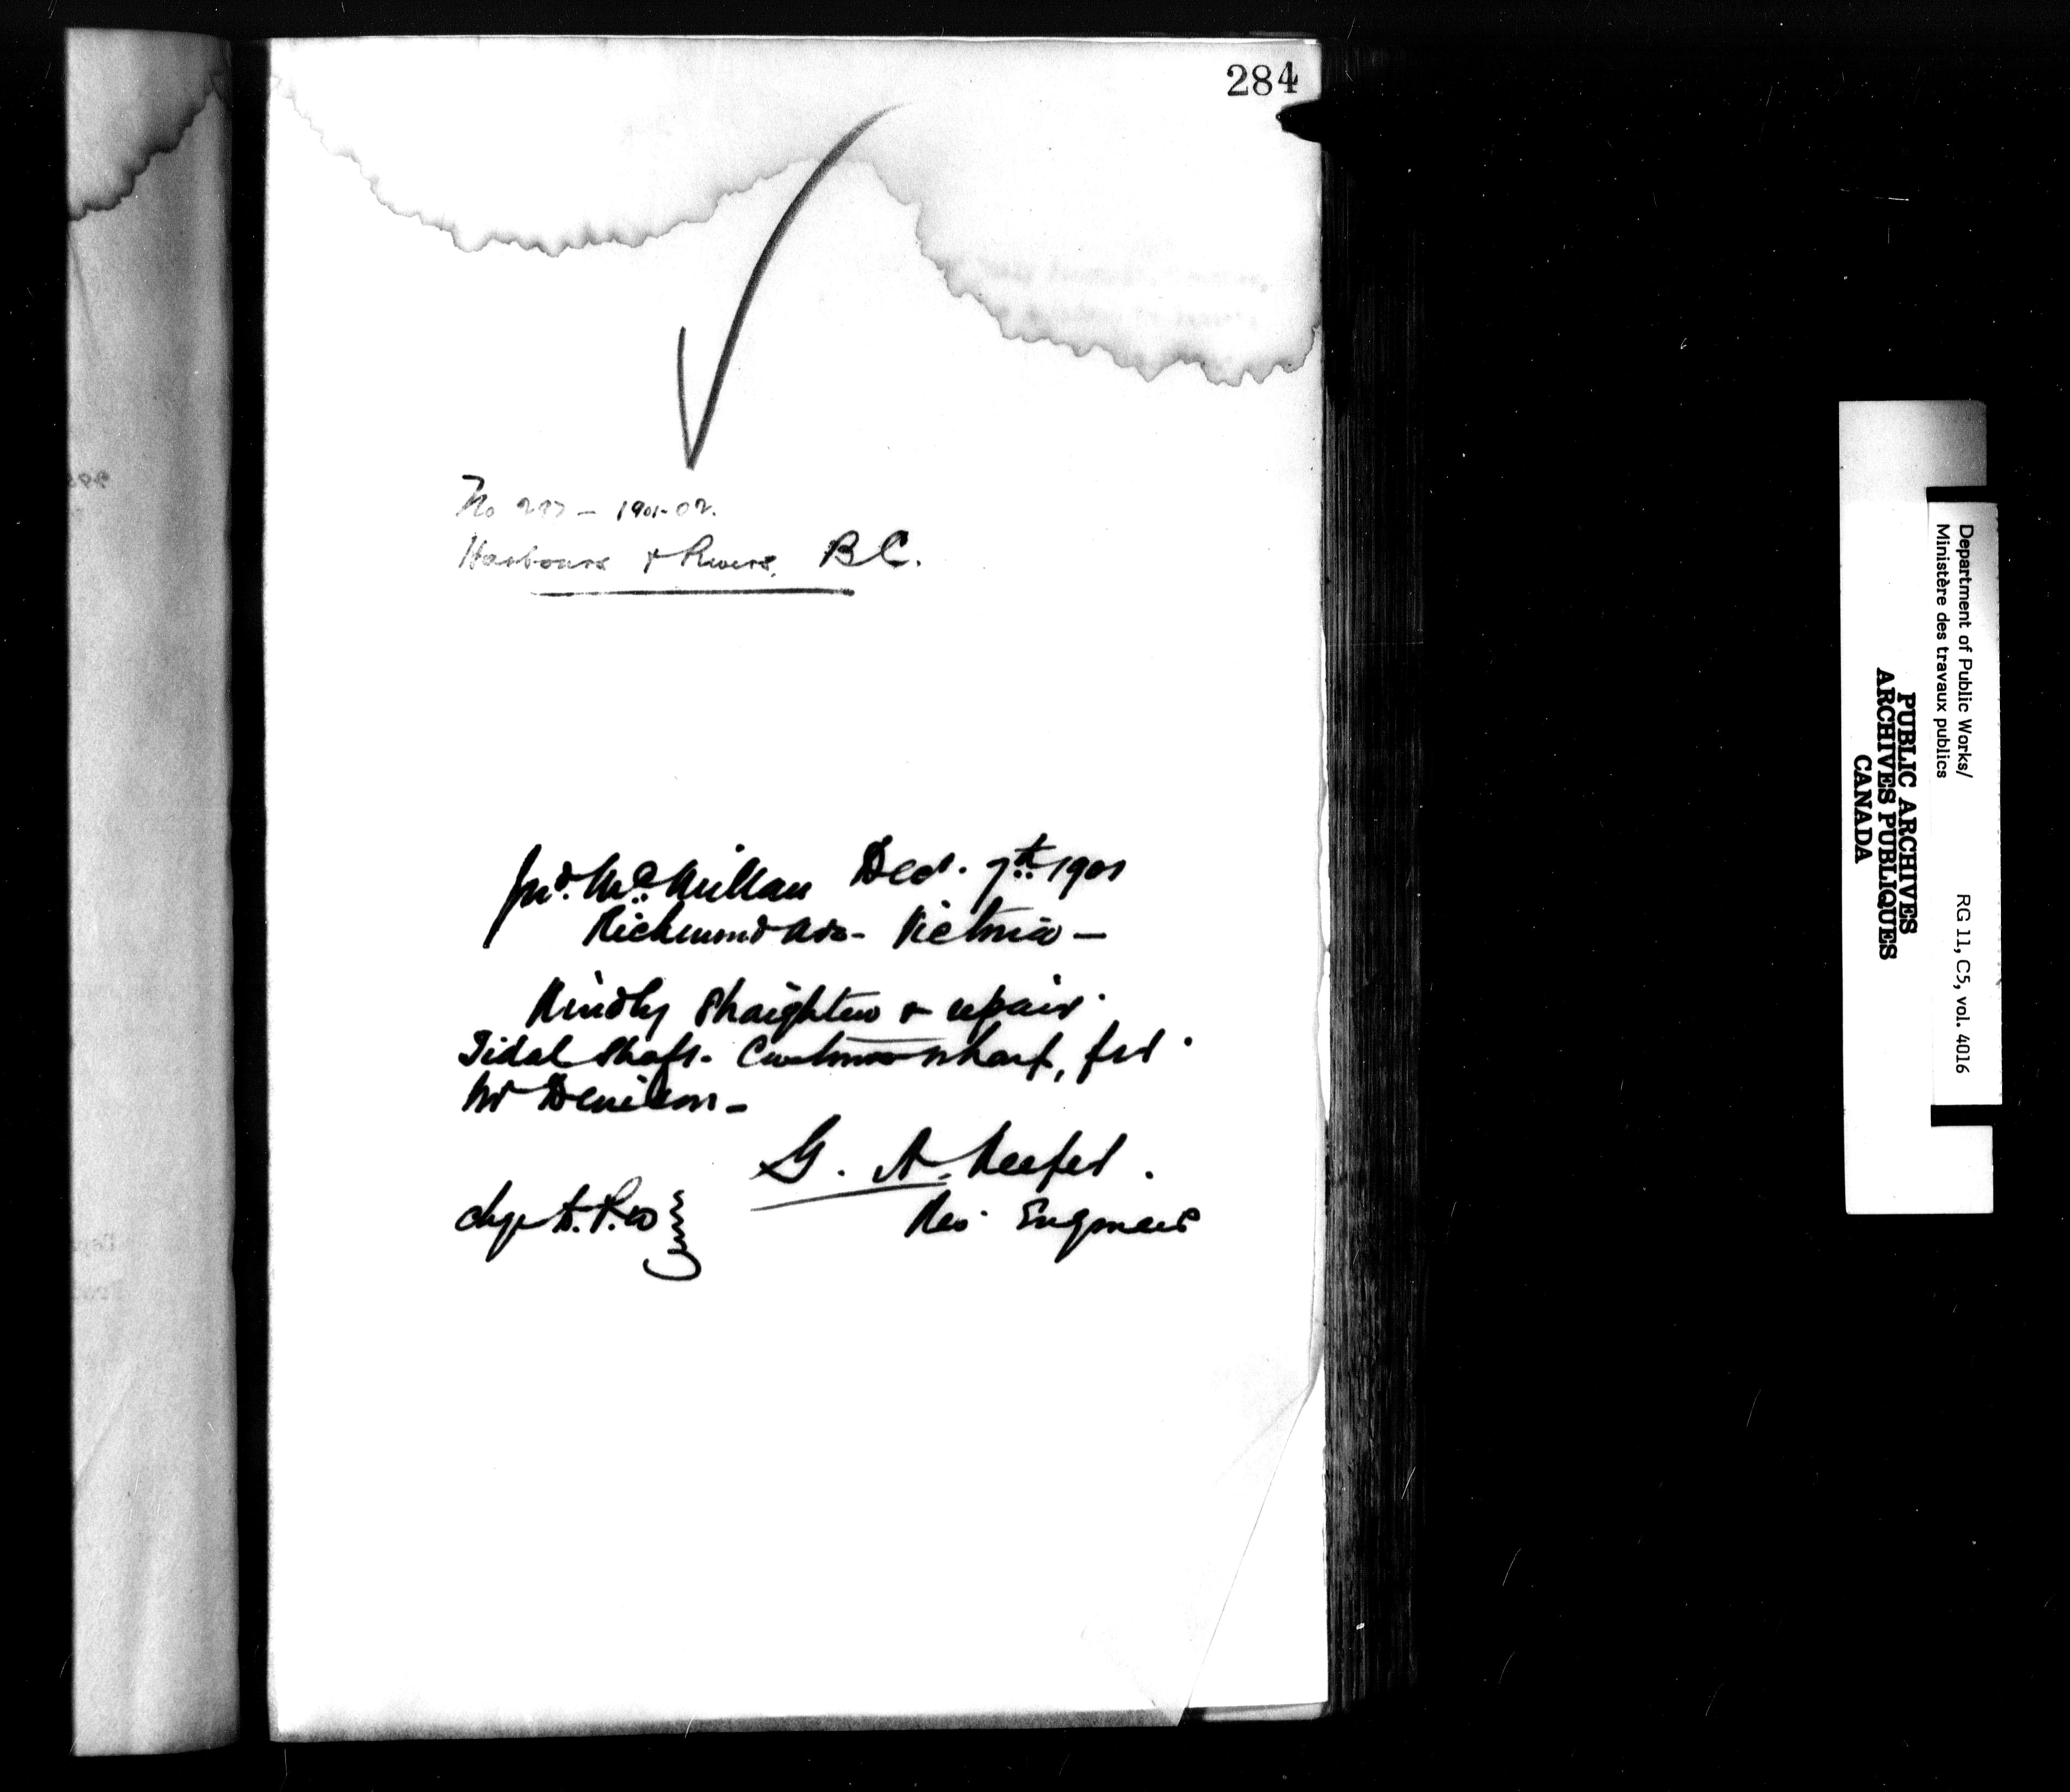 284
No 297 - 1901-02.
Harbours & Rivers, B C.
Jno. McMillan Dec. 7th 1901
Richmond Ave - Victoria -
Kindly straighten & repair
Tidal Shaft. Customs wharf, for
Mr Denison -
G. A. Keefer.
Res. Engineer
chge D. P. W
Department of Public Works/
Ministère des travaux publics
RG 11, C5, vol. 4016
PUBLIC ARCHIVES
ARCHIVES PUBLIQUES
CANADA